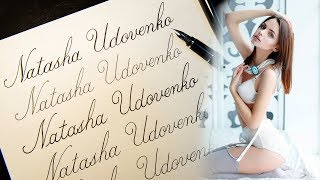 Natasha Udovenko
Natasha Udovenko
Natasha Udovenko
Natasha Udovenko
Natasha Udovenko